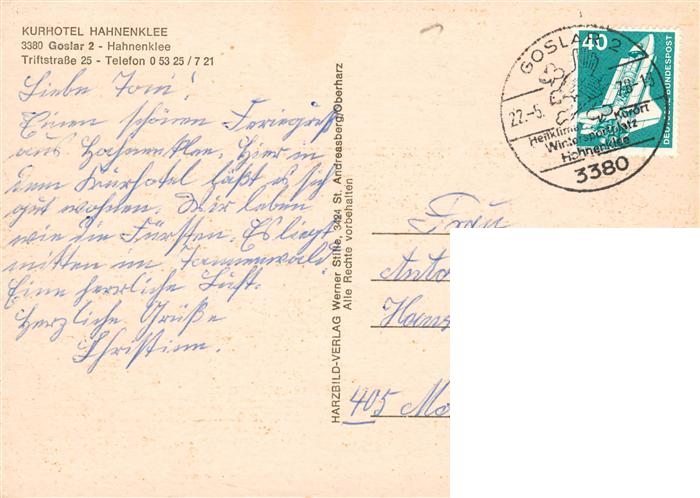 KURHOTEL HAHNENKLEE
3380 Goslar 2 - Hahnenklee
Triftstraße 25 - Telefon 0 53 25 / 7 21
Liebe Toni!
Einen schönen Feriengruß
aus Hahnenklee. Hier in
dem Kurhotel läßt es sich
gut wohnen. Wir leben
wie die Fürsten. Es liegt
mitten im Tannenwald.
Eine herrliche Luft.
Herzliche Grüße
Christine.
HARZBILD-VERLAG Werner Stille, 3424 St. Andreasberg/Oberharz
Alle Rechte vorbehalten
GOSLAR 2
22.-5.
Kurort
Wintersportplatz
Hahnenklee
3380
40
DEUTSCHE BUNDESPOST
Frau
Anto
Hans
405 Mö